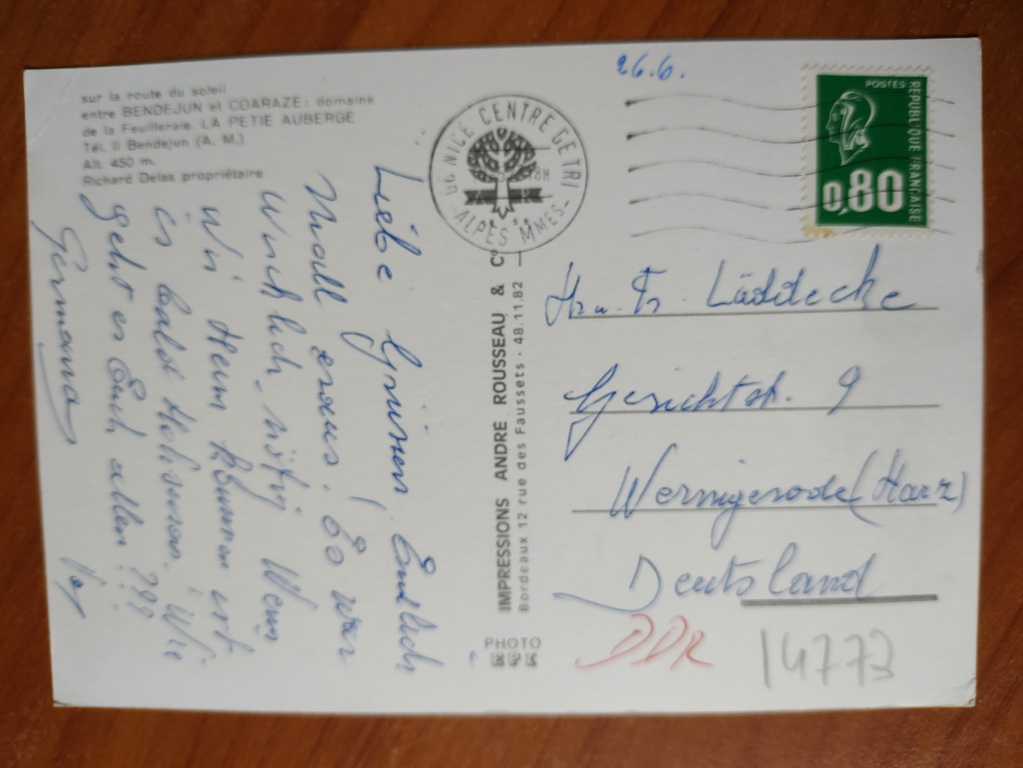 sur la route du soleil
entre BENDEJUN et COARAZE: domaine
de la Feuilleraie. LA PETIE AUBERGE
Tél. 11 Bendejun (A. M.)
Alt. 450 m.
Richard Delas propriétaire
Liebe Grüsse! Endlich
mall! Es war
Wirklich nötig. Wenn
Wir Heim kommen ist
es bald Wie
geht es Euch allen ???
Germana
06 NICE CENTRE DE TRI
ALPES MMES
IMPRESSIONS ANDRÉ ROUSSEAU & Cie
Bordeaux 12 rue des Faussets - 48.11.82
PHOTO
26.6.
POSTES
REPUBLIQUE FRANÇAISE
0,80
Fr. Lüddecke
Gerichtstr. 9
Wernigerode (Harz)
Deutsland
DDR
14773